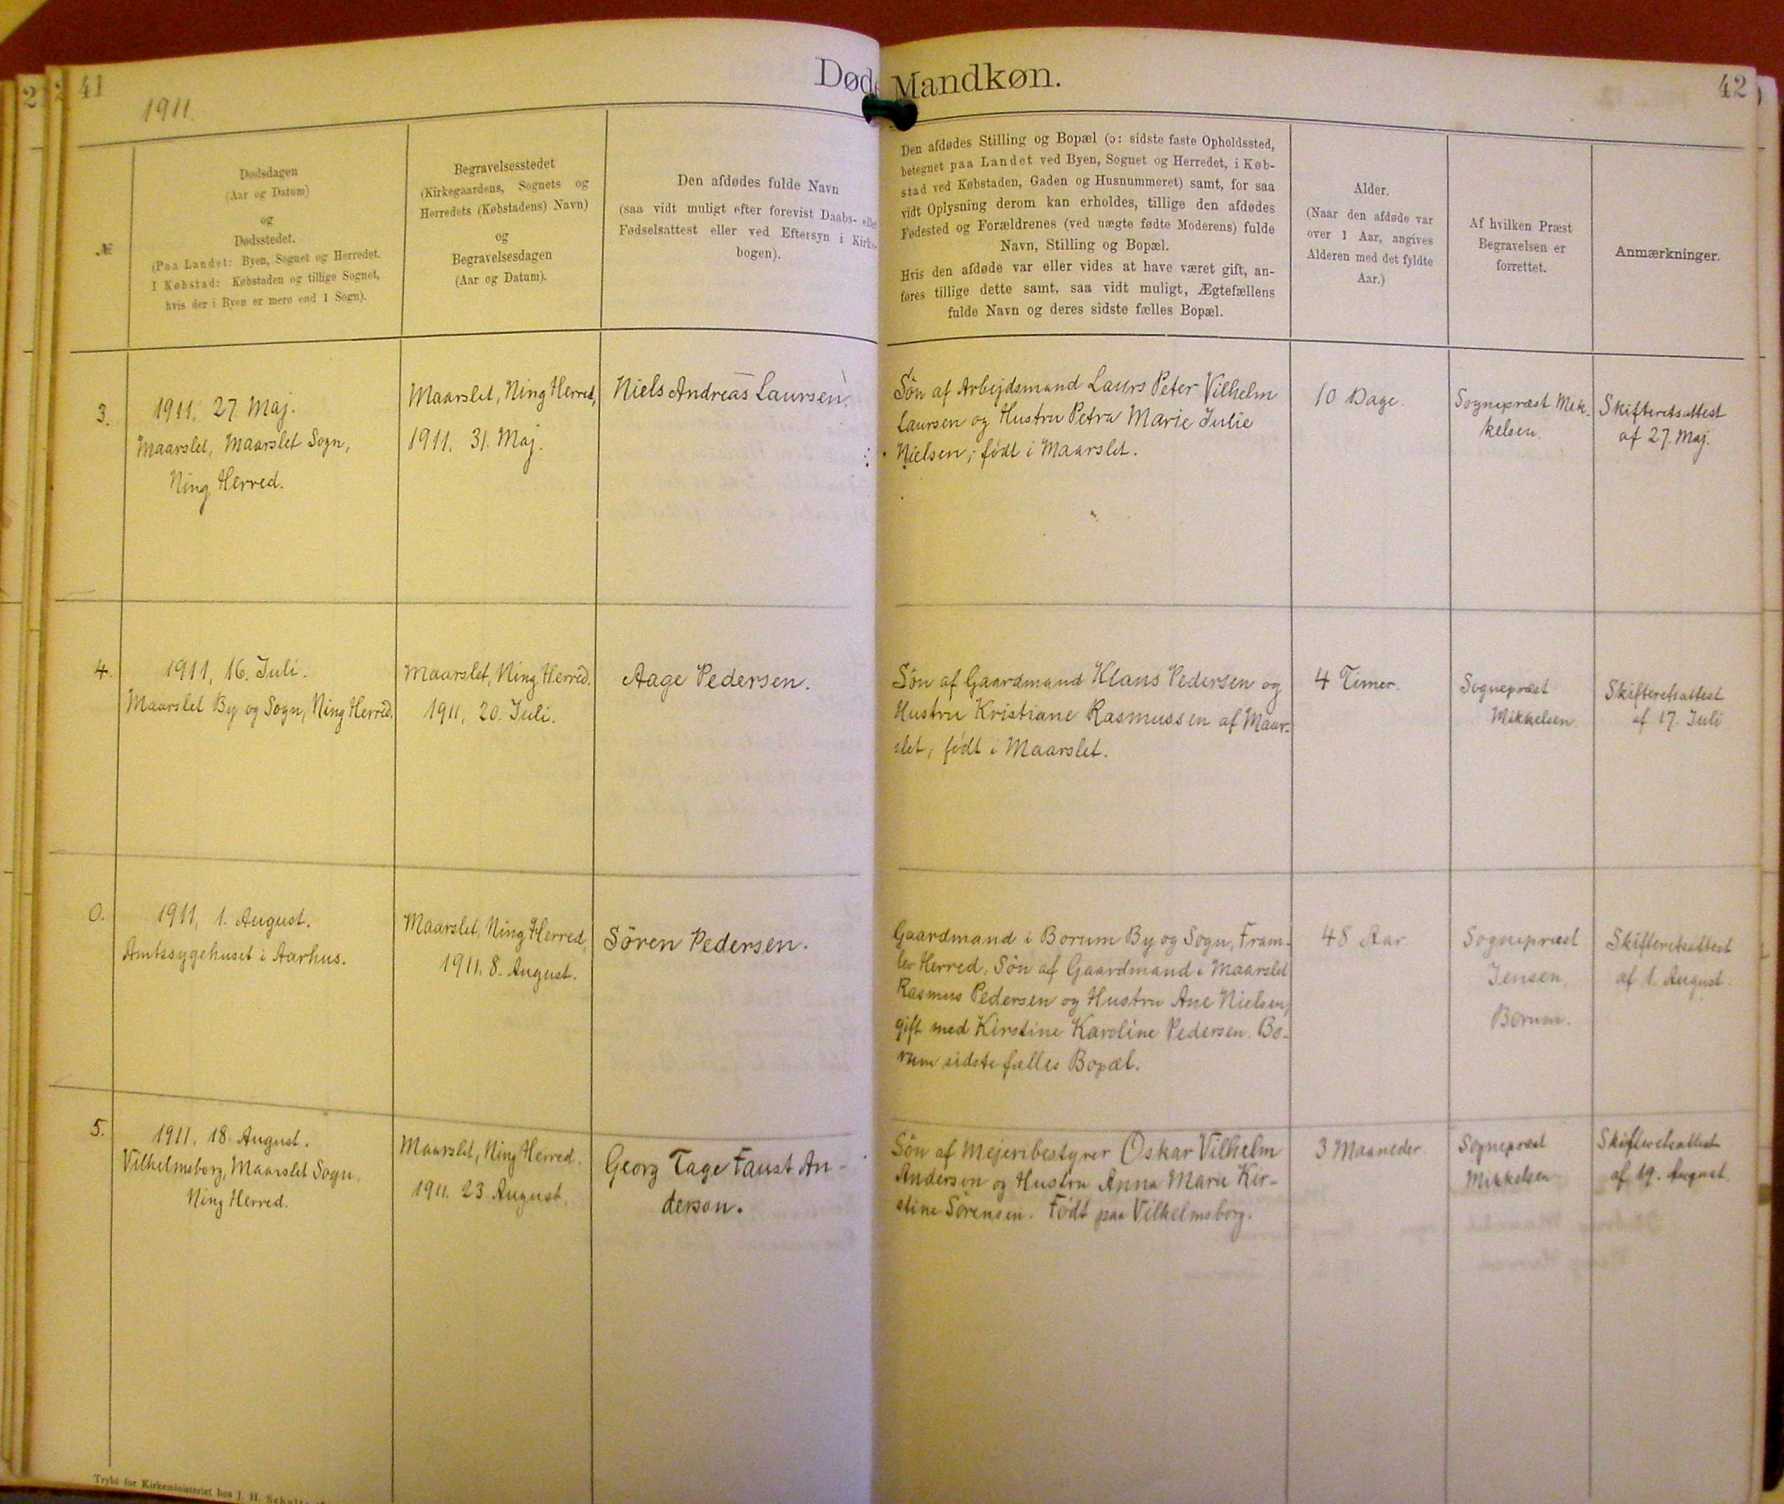 41
1911.
Døde Mandkøn.
42
№
Dødsdagen
(Aar og Datum)
og
Dødsstedet.
(Paa Landet: Byen, Sognet og Herredet.
I Købstad: Købstaden og tillige Sognet,
hvis der i Byen er mere end 1 Sogn).
Begravelsesstedet
(Kirkegaardens, Sognets og
Herredets (Købstadens) Navn)
og
Begravelsesdagen
(Aar og Datum).
Den afdødes fulde Navn
(saa vidt muligt efter forevist Daabs- eller
Fødselsattest eller ved Eftersyn i Kirke-
bogen).
Den afdødes Stilling og Bopæl (ɔ: sidste faste Opholdssted,
betegnet paa Landet ved Byen, Sognet og Herredet, i Køb-
stad ved Købstaden, Gaden og Husnummeret) samt, for saa
vidt Oplysning derom kan erholdes, tillige den afdødes
Fødested og Forældrenes (ved uægte fødte Moderens) fulde
Navn, Stilling og Bopæl.
Hvis den afdøde var eller vides at have været gift, an-
føres tillige dette samt, saa vidt muligt, Ægtefællens
fulde Navn og deres sidste fælles Bopæl.
Alder.
(Naar den afdøde var
over 1 Aar, angives
Alderen med det fyldte
Aar.)
Af hvilken Præst
Begravelsen er
forrettet.
Anmærkninger.
3.
1911, 27. Maj.
Maarslet, Maarslet Sogn,
Ning Herred.
Maarslet, Ning Herred,
1911. 31. Maj.
Niels Andreas Laursen.
Søn af Arbejdsmand Laurs Peter Vilhelm
Laursen og Hustru Petra Marie Julie
Nielsen; født i Maarslet.
10 Dage.
Sognepræst Mik-
kelsen.
Skifteretsattest
af 27. Maj.
4.
1911, 16. Juli.
Maarslet By og Sogn, Ning Herred.
Maarslet, Ning Herred.
1911, 20. Juli.
Aage Pedersen.
Søn af Gaardmand Klaus Pedersen og
Hustru Kristiane Rasmussen af Maar-
slet; født i Maarslet.
4 Timer.
Sognepræst
Mikkelsen
Skifteretsattest
af 17. Juli
0.
1911, 1. August.
Amtssygehuset i Aarhus.
Maarslet, Ning Herred,
1911. 8. August.
Søren Pedersen.
Gaardmand i Borum By og Sogn, Fram-
lev Herred. Søn af Gaardmand i Maarslet
Rasmus Pedersen og Hustru Ane Nielsen,
gift med Kirstine Karoline Pedersen. Bo-
rum sidste fælles Bopæl.
48 Aar
Sognepræst
Jensen,
Borum.
Skifteretsattest
af 1. August.
5.
1911. 18. August.
Vilhelmsborg, Maarslet Sogn.
Ning Herred.
Maarslet, Ning Herred.
1911. 23 August.
Georg Tage Faust An-
derson.
Søn af Mejeribestyrer Oskar Vilhelm
Anderson og Hustru Anna Marie Kir-
stine Sørensen. Født paa Vilhelmsborg.
3 Maaneder.
Sognepræst
Mikkelsen
Skifteretsattest
af 19. August.
Trykt for Kirkeministeriet hos J. H. Schultz